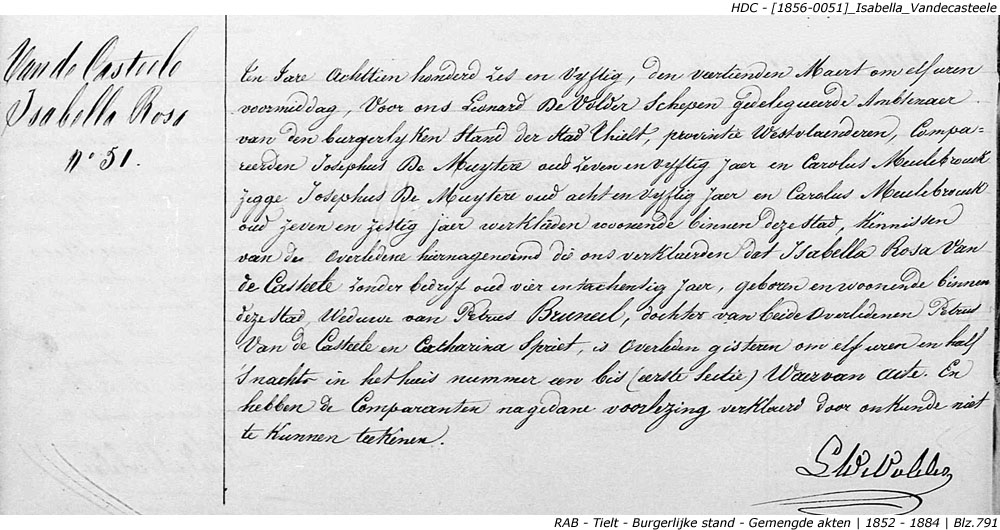 HDC - [1856-0051]_Isabella_Vandecasteele
Van de Casteele
Isabella Rosa
n° 51.
In Jare achttien honderd zes en vyftig, den veertienden Maert om elf uren
voormiddag, Voor ons Leonard De Volder Schepen gedelegueerde Ambtenaer
van den burgerlyken Stand der Stad Thielt, provintie Westvlaenderen, Compa-
reerden Josephus De Muytere oud zeven en vyftig Jaer en Carolus Meulebrouck
zegge Josephus De Muytere oud acht en vyftig Jaer en Carolus Meulebrouck
oud zeven en zestig jaer werklieden woonende binnen deze Stad, Kennissen
van de Overledene hiernagenoemd die ons verklaerden dat Isabella Rosa Van
de Casteele zonder bedrijf oud vier en tachentig Jaer, geboren en woonende binnen
deze Stad, Weduwe van Petrus Bruneel, dochter van beide Overledenen Petrus
Van de Casteele en Catharina Spriet, is Overleden gisteren om elf uren en half
's nachts in het huis nummer een bis (eerste Sectie) Waervan acte. En
hebben de Comparanten nagedane voorlezing verklaerd door onkunde niet
te Kunnen teekenen.
L De Volder
RAB - Tielt - Burgerlijke stand - Gemengde akten | 1852 - 1884 | Blz.791